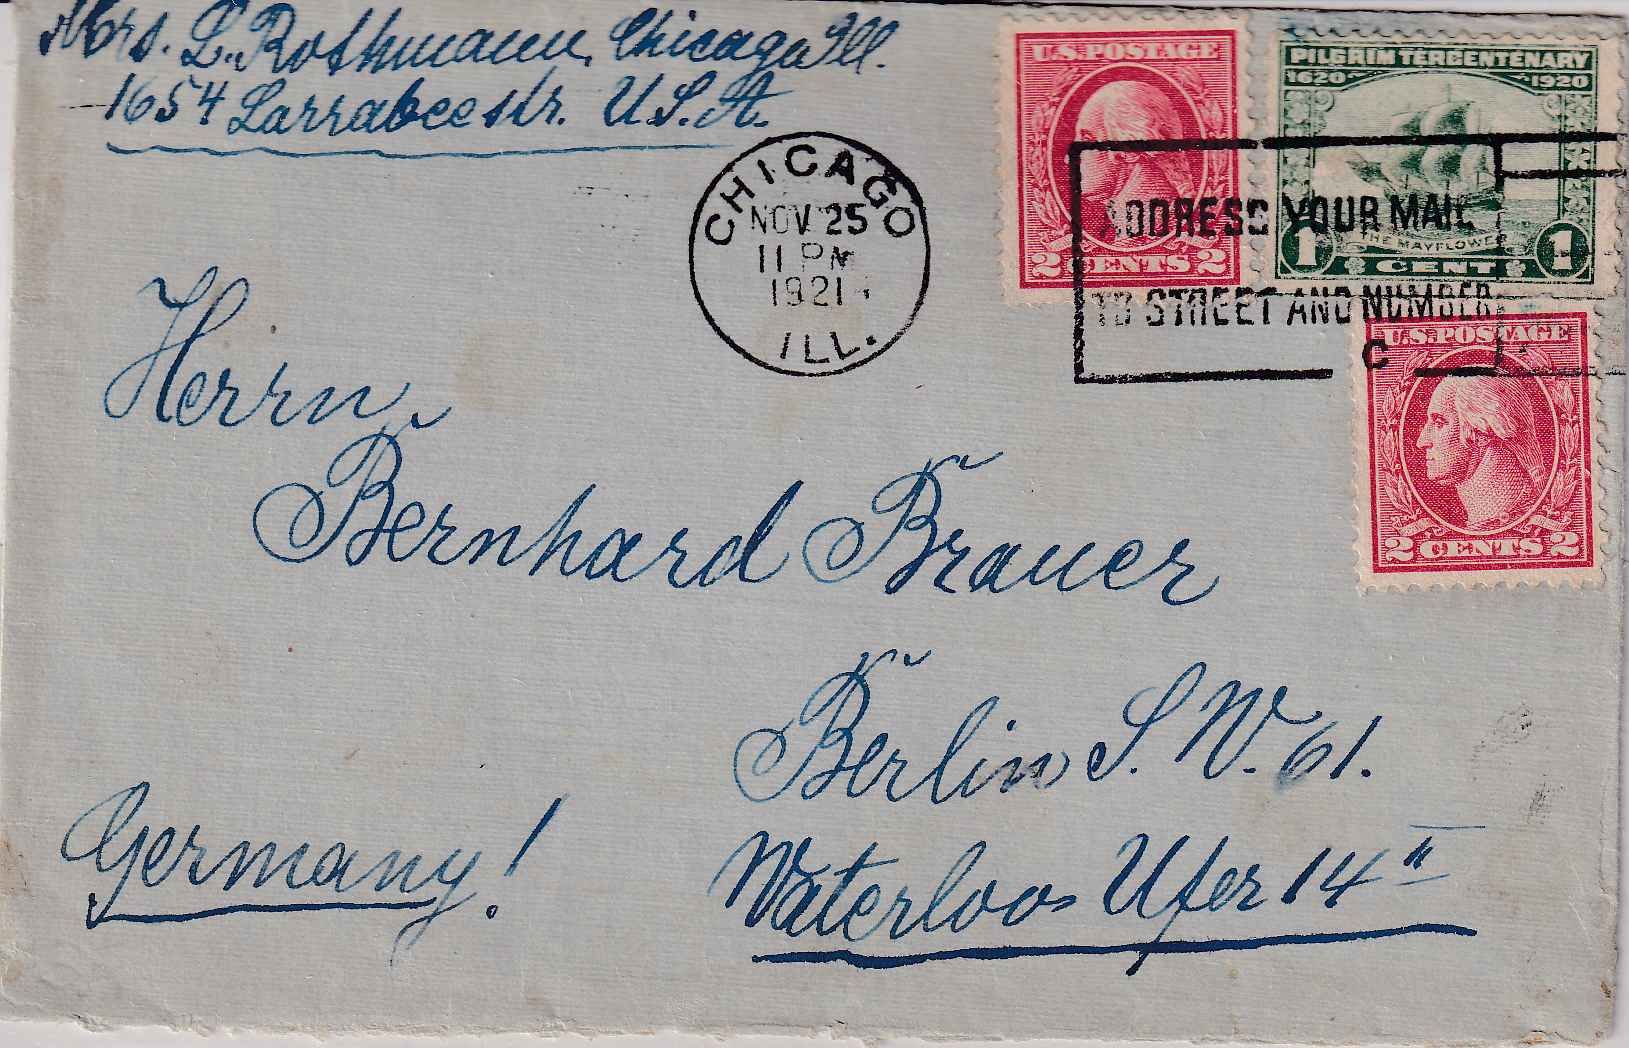 Mrs. L. Rothmann, Chicago Ill.
1654 Larrabee str. U.S.A.
U.S. POSTAGE
2 CENTS 2
PILGRIM TERCENTENARY
1620 1920
THE MAYFLOWER
1 CENT 1
CHICAGO
NOV 25
11 PM
1921
ILL.
ADDRESS YOUR MAIL
TO STREET AND NUMBER
C
U.S. POSTAGE
2 CENTS 2
Herrn
Bernhard Brauer
Berlin S.W. 61.
Waterloo Ufer 14 II
Germany!